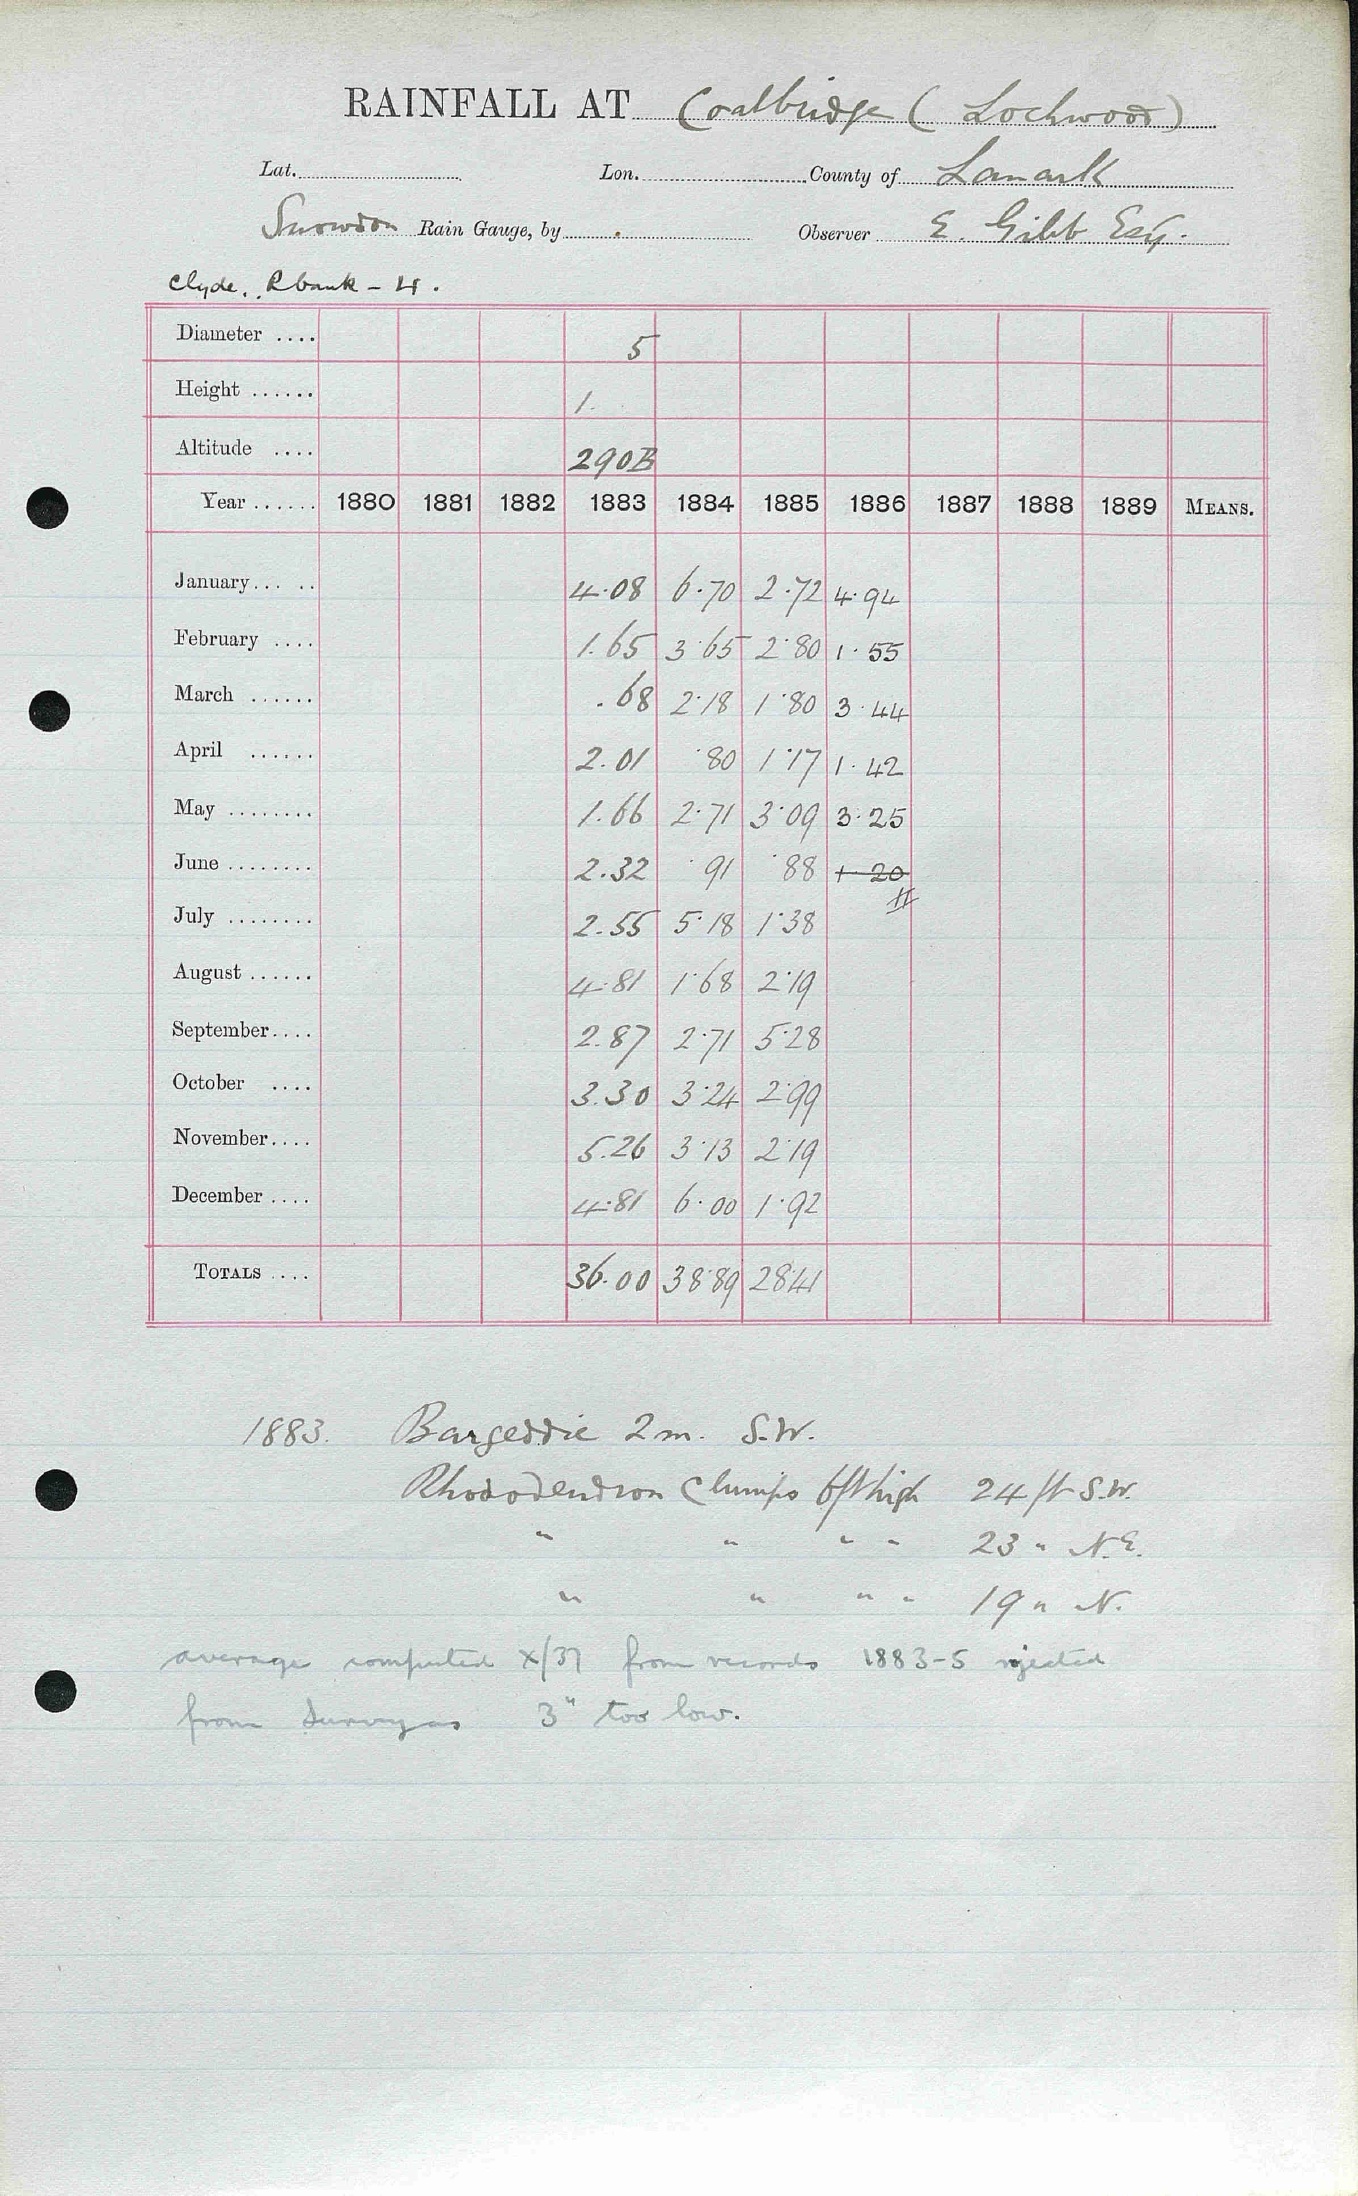 RAINFALL AT Coatbridge (Lochwood)
Lat. Lon. County of Lanark
Snowdon Rain Gauge, by Observer E. Gibb Esq.
Clyde. R bank - 4.
Diameter .... 5
Height ...... 1.
Altitude .... 290B
Year ...... 1880 1881 1882 1883 1884 1885 1886 1887 1888 1889 MEANS.
January... .. 4.08 6.70 2.72 4.94
February .... 1.65 3.65 2.80 1.55
March ...... .68 2.18 1.80 3.44
April ...... 2.01 .80 1.17 1.42
May ........ 1.66 2.71 3.09 3.25
June ........ 2.32 .91 .88 1 20
July ........ 2.55 5.18 1.38
August ...... 4.81 1.68 2.19
September.... 2.87 2.71 5.28
October .... 3.30 3.24 2.99
November.... 5.26 3.13 2.19
December .... 4.81 6.00 1.92
TOTALS .... 36.00 38.89 28.41
1883. Bargeddie 2m. S.W.
Rhododendron Clumps 6ft high 24 ft S.W.
" " " " 23 " N.E.
" " " " 19 " N.
average computed x/37 from records 1883-5 rejected
from Survey as 3" too low.